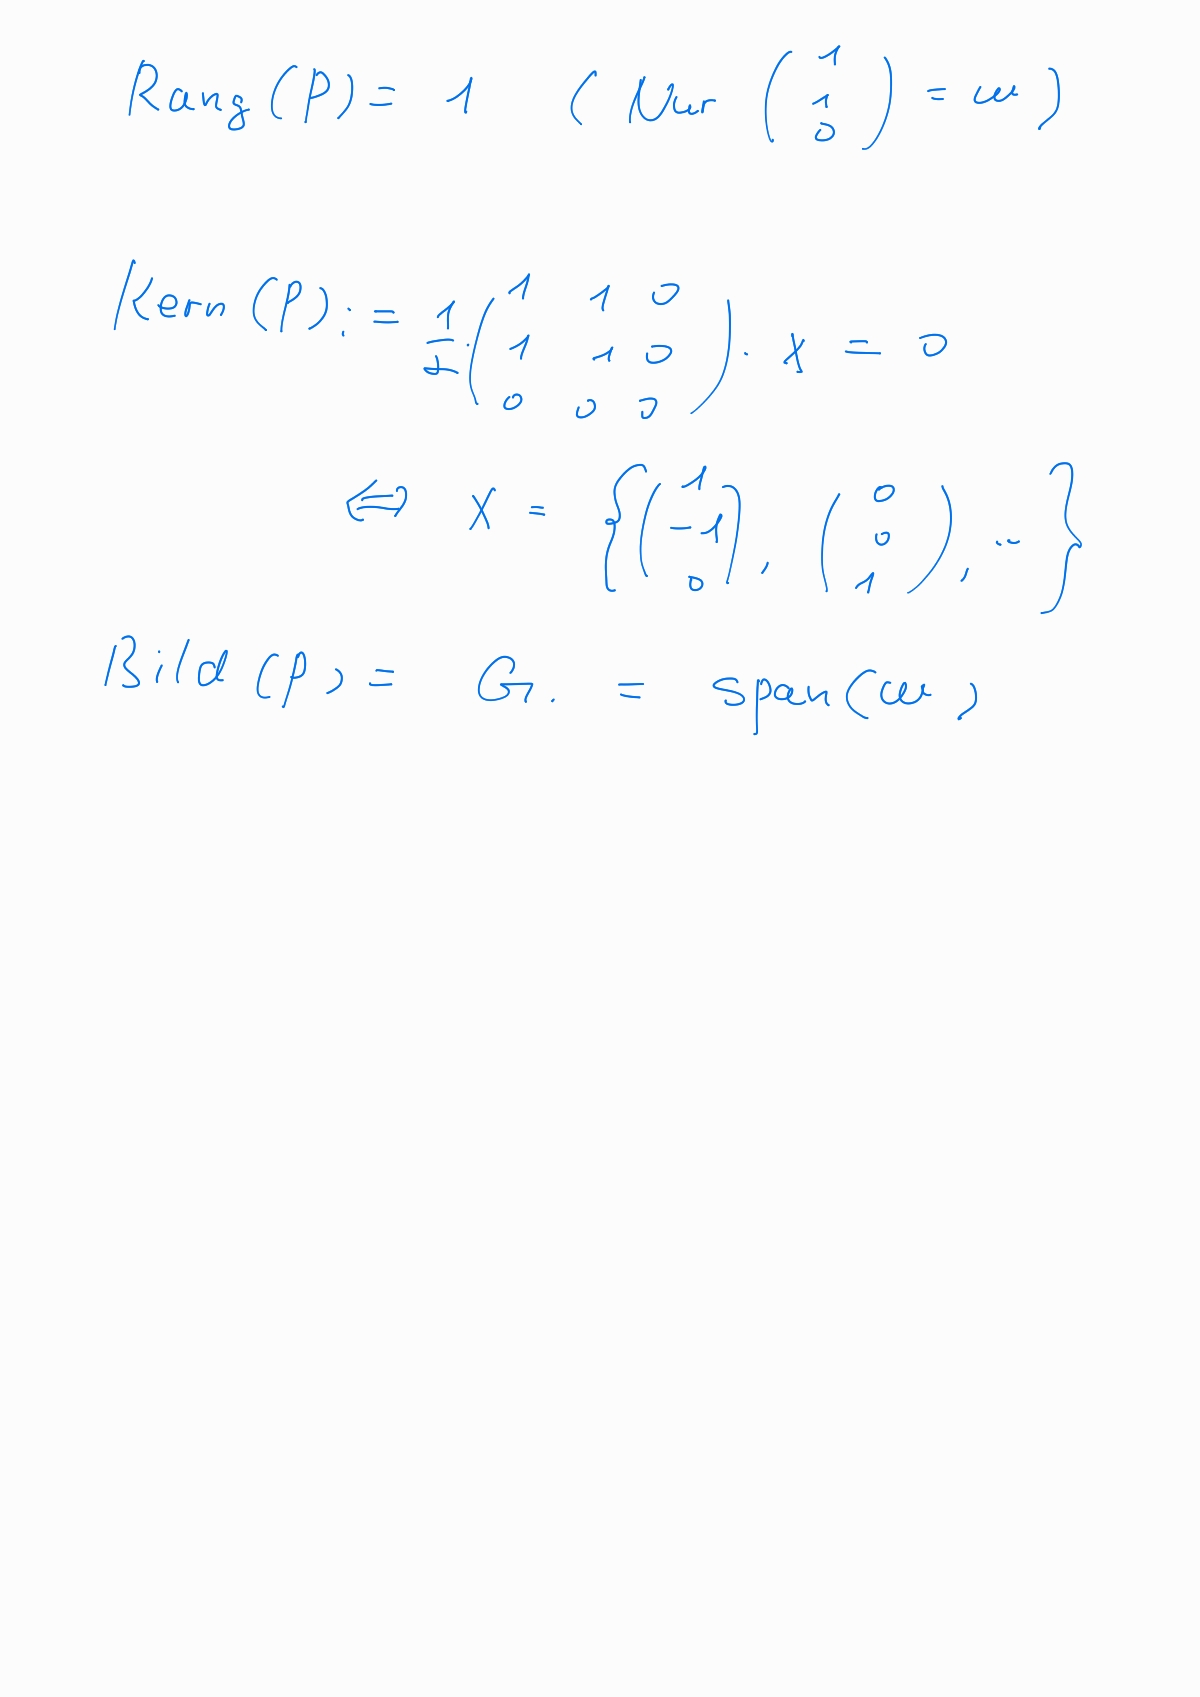 Rang(P) = 1 ( Nur (1 1 0) = w )
Kern(P): = 1/2 · (1 1 0 / 1 1 0 / 0 0 0) · x = 0
⇔ x = {(1 -1 0), (0 0 1), ..}
Bild(P) = G. = span(w)